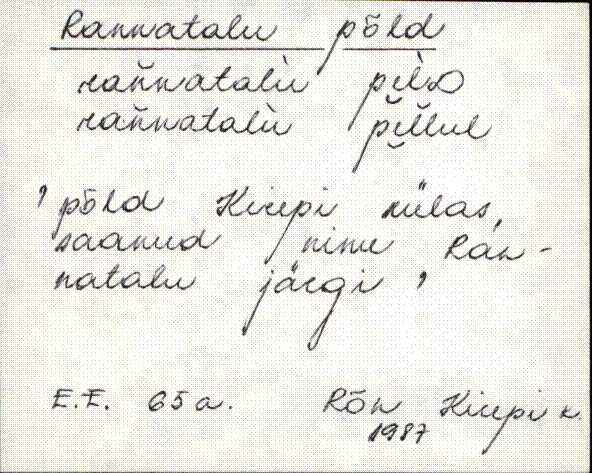 Rannatalu põld
rańnatalù pèl̬D
rańnatalù pe̬l̆lul
' põld Kirepi külas,
saanud nime Ran-
natalu järgi '
E.E. 65 a. Rõn Kirepi k.
1987